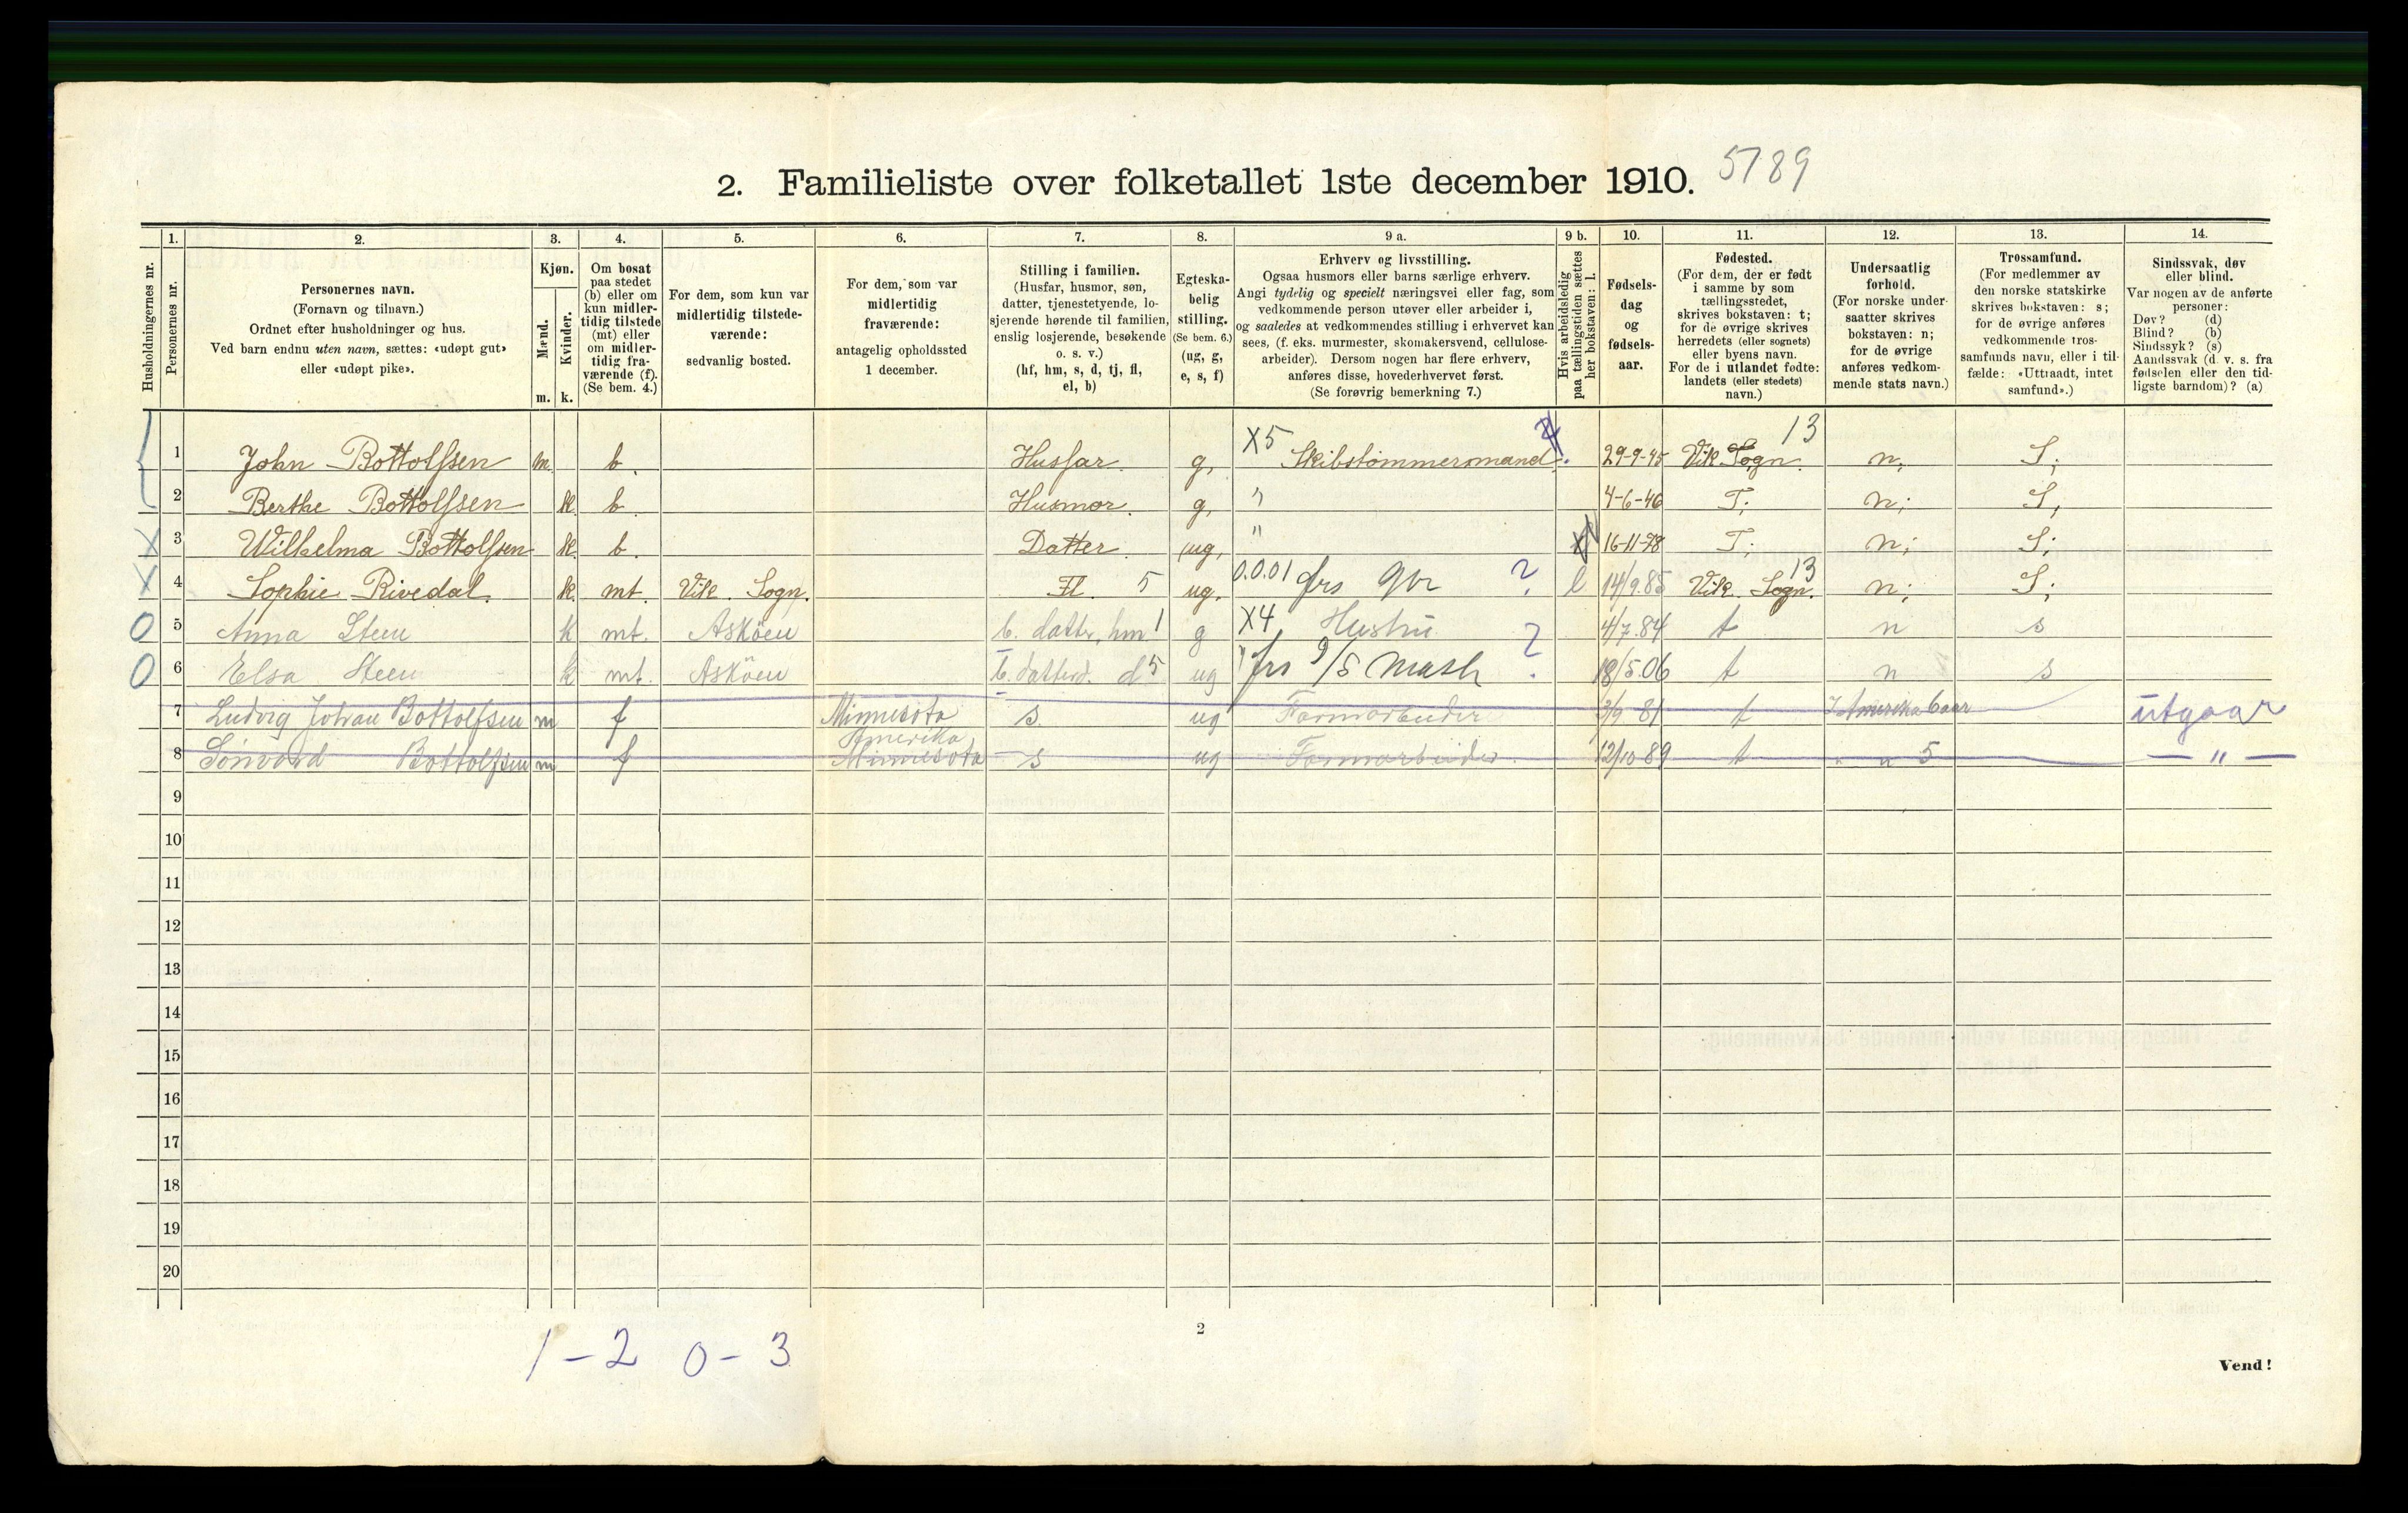 2. Familieliste over folketallet 1ste december 1910. 5789
Husholdningernes nr.
1. Personernes nr.
2.
Personernes navn.
(Fornavn og tilnavn.)
Ordnet efter husholdninger og hus.
Ved barn endnu uten navn, sættes: «udøpt gut»
eller «udøpt pike».
3.
Kjøn.
Mænd. Kvinder.
m. k.
4.
Om bosat
paa stedet
(b) eller om
kun midler-
tidig tilstede
(mt) eller
om midler-
tidig fra-
værende (f).
(Se bem. 4.)
5.
For dem, som kun var
midlertidig tilstede-
værende:
sedvanlig bosted.
6.
For dem, som var
midlertidig
fraværende:
antagelig opholdssted
1 december.
7.
Stilling i familien.
(Husfar, husmor, søn,
datter, tjenestetyende, lo-
sjerende hørende til familien,
enslig losjerende, besøkende
o. s. v.)
(hf, hm, s, d, tj, fl,
el, b)
8.
Egteska-
belig
stilling.
(Se bem. 6.)
(ug, g,
e, s, f)
9 a.
Erhverv og livsstilling.
Ogsaa husmors eller barns særlige erhverv.
Angi tydelig og specielt næringsvei eller fag, som
vedkommende person utøver eller arbeider i,
og saaledes at vedkommendes stilling i erhvervet kan
sees, (f. eks. murmester, skomakersvend, cellulose-
arbeider). Dersom nogen har flere erhverv,
anføres disse, hovederhvervet først.
(Se forøvrig bemerkning 7.)
9 b.
Hvis arbeidsledig
paa tællingstiden sættes
her bokstaven: l.
10.
Fødsels-
dag
og
fødsels-
aar.
11.
Fødested.
(For dem, der er født
i samme by som
tællingsstedet,
skrives bokstaven: t;
for de øvrige skrives
herredets (eller sognets)
eller byens navn.
For de i utlandet fødte:
landets (eller stedets)
navn.)
12.
Undersaatlig
forhold.
(For norske under-
saatter skrives
bokstaven: n;
for de øvrige
anføres vedkom-
mende stats navn.)
13.
Trossamfund.
(For medlemmer av
den norske statskirke
skrives bokstaven: s;
for de øvrige anføres
vedkommende tros-
samfunds navn, eller i til-
fælde: «Uttraadt, intet
samfund».)
14.
Sindssvak, døv
eller blind.
Var nogen av de anførte
personer:
Døv? (d)
Blind? (b)
Sindssyk? (s)
Aandssvak (d. v. s. fra
fødselen eller den tid-
ligste barndom)? (a)
1 John Bottolfsen m. b. Husfar. g, X5 Skibstømmermand. 29-9-45 Vik Sogn. 13 n; S;
2 Berthe Bottolfsen k. b. Husmor. g, " 4-6-46 T; n; S;
X 3 Wilhelma Bottolfsen k. b. Datter. ug, " 16-11-78 T; n; S;
X 4 Sophie Rivedal. k. mt. Vik. Sogn. Fl. 5 ug. 0.0.01 frs gbr ? l 14/9.85 Vik. Sogn. 13 n; S;
0 5 Anna Steen k mt. Askøen b. datter, hm 1 g X4 Hustru ? 4/7.84 t n s
0 6 Elsa Steen k mt. Askøen b. datterd. d5 ug " frs 9/5 mask . 18/5.06 t n s
7 Ludvig Johan Bottolfsen m f Minnesota s. ug Farmarbeider 3/9 81 t I Amerika 6 aar utgaar
Amerika
8 Bottolfsen m f Minnesota s ug Farmarbeider. 12/10 89 t " " 5 — " —
9
10
11
12
13
14
15
16
17
18
19
20
1 - 2 0 - 3
2
Vend!